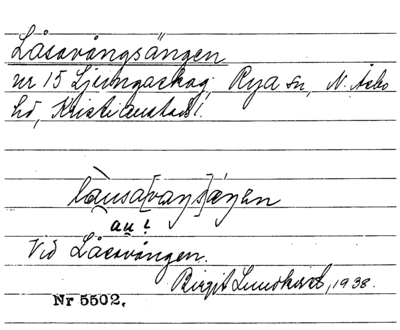 Låsavångsängen
nr 15 Ljungaskog, Rya sn, N. Åsbo
hd, Kristianstads l.
làusa[vaŋs]äŋen
au!
Vid Låsavången.
Birgit Lundkvist, 1938.
Nr 5502.